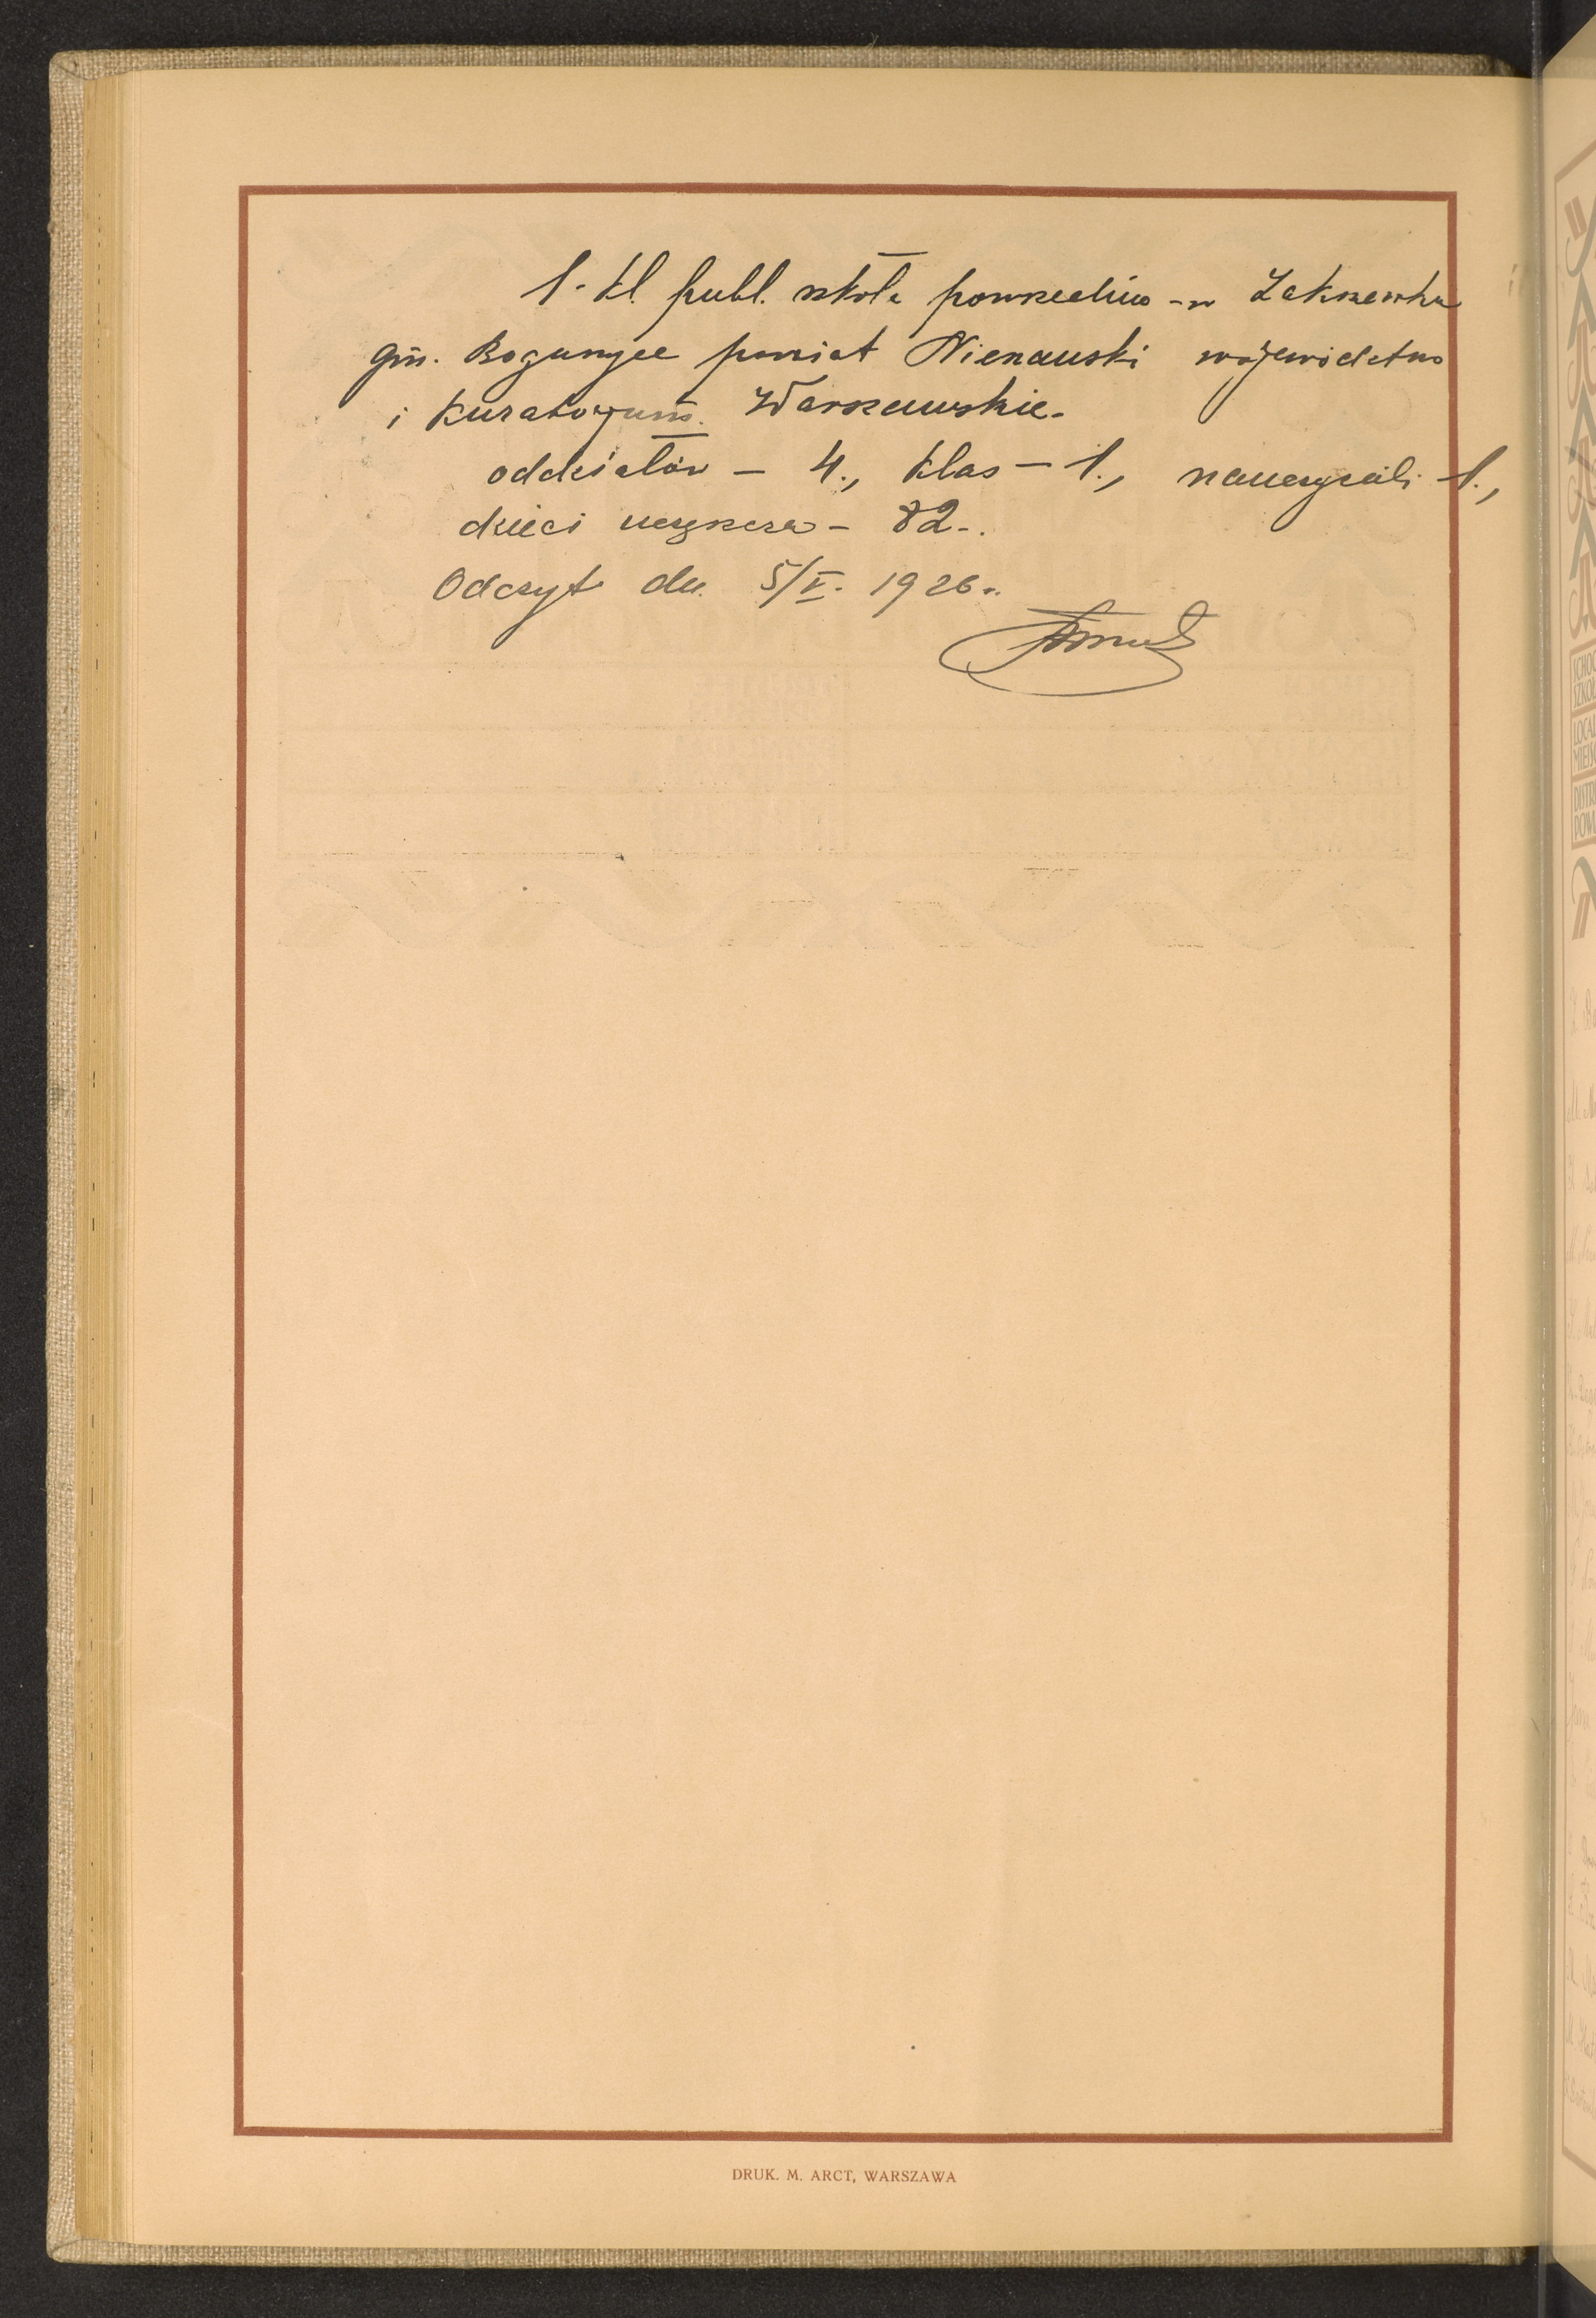 1. kl. publ. szkoła powszechna w Zakrzewku
gm. Bogurzyce powiat Nieszawski województwo
i Kuratorjum. Warszawskie.
oddziałów – 4., klas – 1., nauczycieli 1.,
dzieci uczęszcza – 82.
Odczyt dn. 5/V. 1926.
DRUK. M. ARCT, WARSZAWA